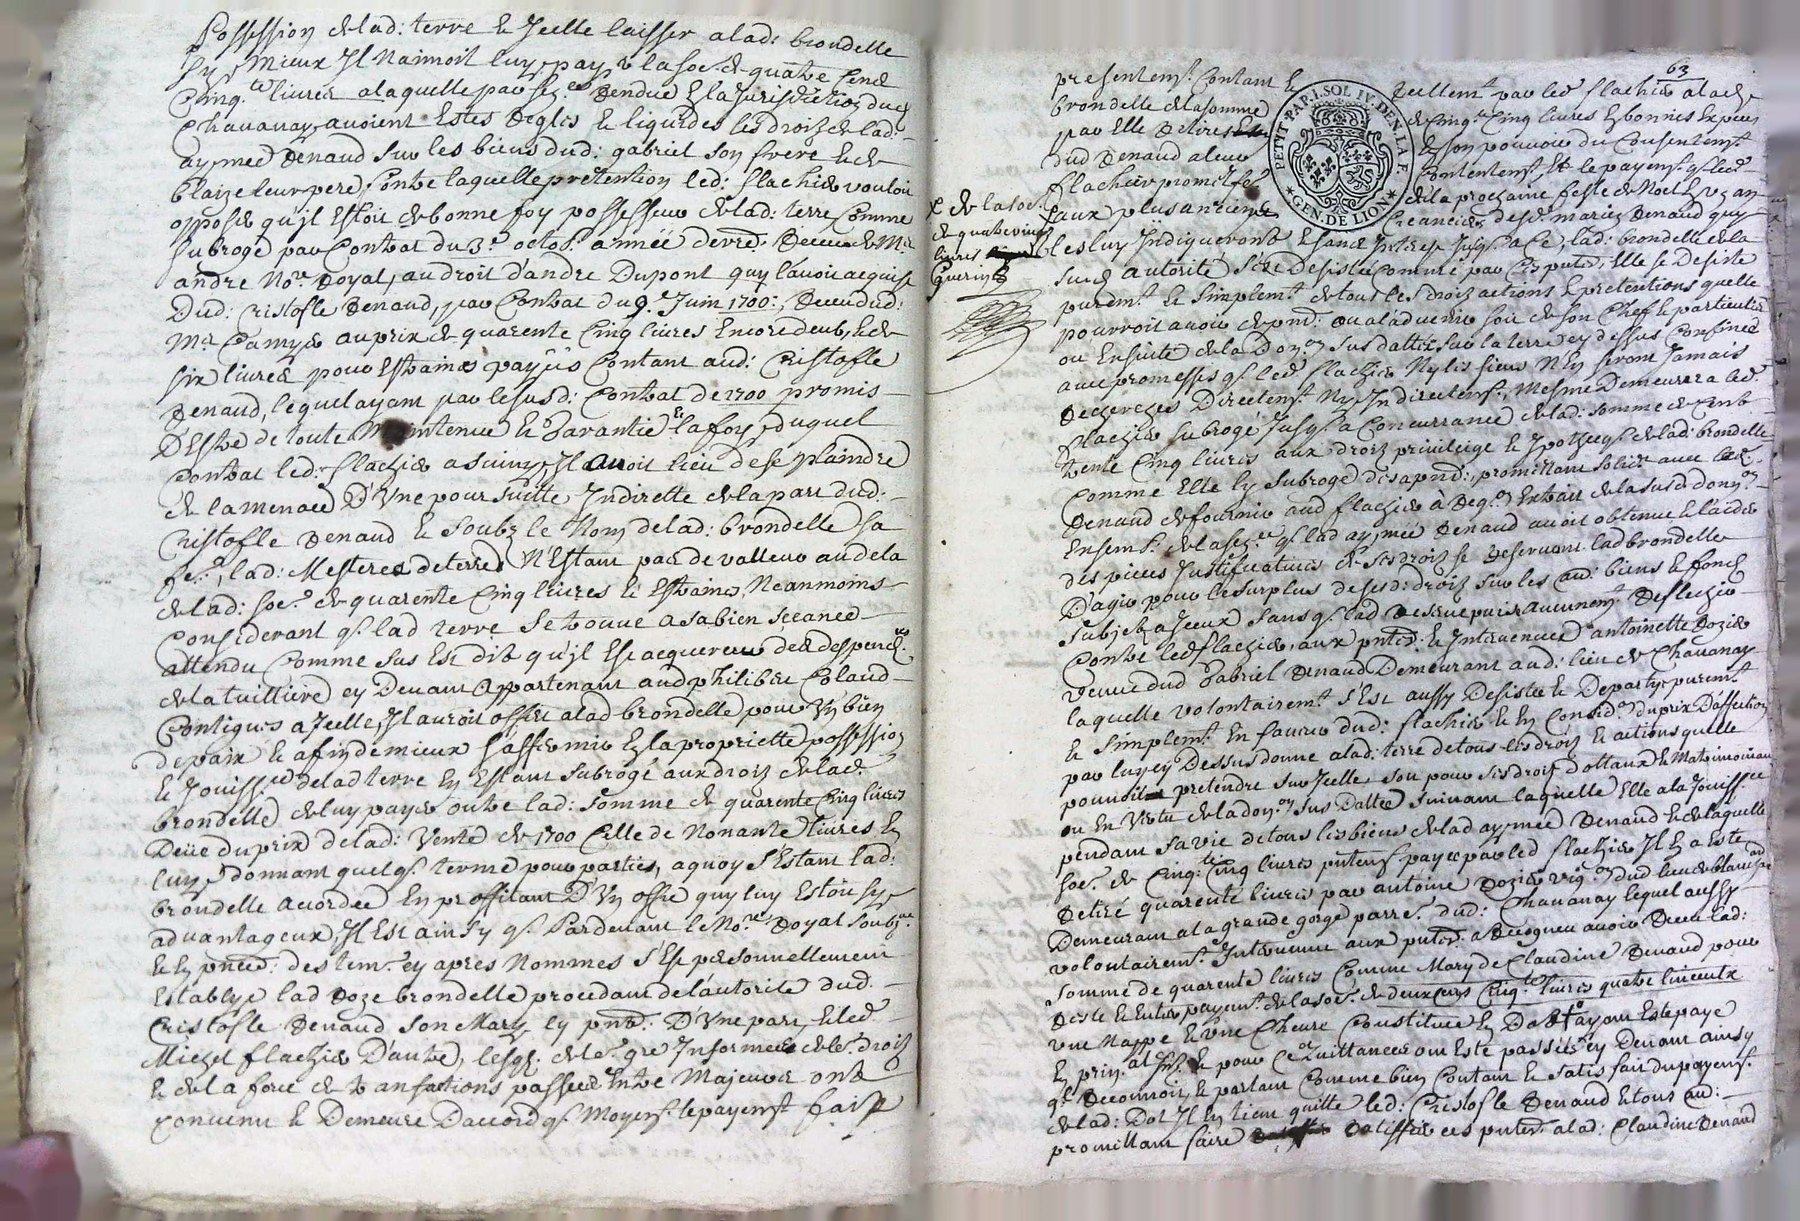 possession de lad: terre & Icelle laisser alad: brondelle
sy mieux Il N'aimoit luy payer la so.e de quatre Cens
Cinq.te livres a laquelle par s.ce Rendue En la Jurisdiction dud
Chavanay avoient Estes Reglés & liquides les droitz de lad:
aymée Renaud sur les biens dud: gabriel son frere & de
blaize leur pere, Contre laquelle pretention led: flachier vouloit
opposer qu'il Estoit de bonne foy possesseur de lad: terre Comme
subrogé par Contrat du 3.e octob. année der.re Receu de M.e
andre No.re Royal, au droit d'andre Dupont quy l'avoit acquise
Dud: Cristofle Renaud, par Contrat du 9.e Juin 1700: Receu dud:
M.e Camyer au prix de quarente Cinq livres Encore deub, & de
six livres pour Estraines payées Contant aud: Cristofle
Renaud, lequel ayant par le susd: Contrat de 1700 promis
D'Estre de toute Maintenue & Garantie Et la foy duquel
Contrat led: flachier a suivy, Il auroit lieu de se plaindre
de la menace D'Une poursuitte Indirette de la part dud:
Cristofle Renaud & soubz le Nom de lad: brondelle sa
fe.e, lad: Mesteree de terre N'Estant pas de valleur au dela
de lad: so.e de quarente Cinq livres & Estraines, Neanmoins
Considerant q. lad terre se trouve a sa bien seance
attendu Comme sus Est dit qu'il Est acquereur des despendces
de la tuilliere cy Devant Appartenant aud philibert Coland
Contigues a Icelle, Il auroit offert alad brondelle pour Un bien
de paix & afin de mieux s'affermir En la proprietté possession
& Jouiss.ce de lad terre En Estant subrogé aux droitz de lad.
brondelle de luy payer outre lad: somme de quarente Cinq livres
Deüe du prix de lad: Vente de 1700 Celle de Nonante livres En
luy donnant quelq. terme pour partie, a quoy S'Estant lad:
brondelle acordee En proffitant D'Un offre quy luy Estoit sy
advantageux, Il Est ainsy q. Pardevant le No.re Royal soubz.né
& En p.nce des tem. cy apres Nommés S'Est personnellement
Establye lad Roze brondelle procedant de l'autorité dud.
Cristofle Renaud son Mary cy p.nt: D'Une part, & led
Michel flachier D'autre, lesq. de le. gre Informees de le. droitz
& de la force de transactions passées Entre Majeurs ont
convenu & Demeuré D'accord q. Moyen.t le payem.t fait
63
presentem.t Contant a
brondelle de la somme
par Elle Retirés
dud Renaud a leur
flachier promet fe
x de la so.e
de quatre vingt
livres
Guerin
aux plus anciens
les luy Indiqueront & sans Interest Jusq. a Ce, lad: brondelle de la
reellem.t par led flachier alad
de Cinq.te Cinq livres En bonnes Especes
& son pouvoir du Consentem.t
Contentem.t & le payem.t q. led
de la prochaine feste de Noel En un an
Creanciers des d. mariez Renaud quy
PETIT·PAP·1.SOL IV·DEN.LA F.
GEN.DE LION
susd autorité s'est Desistée Comme par Ces p.ntes, Elle se Desiste
purem.t & simplem.t de tous les droitz actions & pretentions quelle
pourroit avoir de p.nt: ou a l'advenir soit de son Chef & particulier
ou Ensuite de la Do.on sus dattée sur la terre cy dessus Confinee
avec promesses q. led flachier Ny les siens N'En seront Jamais
Recherchés Directem.t Ny Indirectem.t, Mesme Demeurera led.
flachier subrogé Jusq. a Concurrance de lad: somme de Cent
trente Cinq livres aux droitz privilege & Ipotheq. de lad: brondelle
Comme Elle l'y subroge des a p.nt: promettant solid.t avec led
Renaud de fournir aud flachier à Req.on Extrait de la susd don.on
Ensem.e de la s.ce q. lad aymée Renaud avoit obtenue & l'aider
des pieces Justificatives de ses droitz se Reservant lad brondelle
D'agir pour le surplus de sesd: droitz sur les au. biens & fonds
subjetz a Iceux sans q. lad Reserve puisse aucunem.t Reflechir
Contre led flachier, aux p.ntes: Est Intervenue antoinette Rozier
veuve dud Gabriel Renaud Demeurant aud: lieu de Chavanay
laquelle volontairem.t s'Est aussy Desistée & Departye purem.t
& simplem.t En faveur dud: flachier & En Consid.on du prix D'affection
par luy cy Dessus donné a lad: terre de tous les droitz & actions quelle
pourroit pretendre sur Icelle soit pour ses droitz dottaux & Matrimoniaux
ou En Vertu de la don.on sus Dattée suivant laquelle Elle a la Jouiss.ce
pendant sa vie de tous les biens de lad aymée Renaud & de laquelle
so.e de Cinq.te Cinq livres p.ntem.t payée par led flachier Il En a Esté
Retiré quarente livres par antoine Rozier vig.on dud lieu de blanchard
Demeurant a la grande gorge parre. dud: Chavanay lequel aussy
volontairem.t Intervenu aux p.ntes: a Recogneu avoir Receu lad:
somme de quarente livres Comme Mary de Claudine Renaud pour
Reste & Entier payem.t de la so.e de deux cens Cinq.te livres quatre linceulx
une Nappe & Une Chevre Constitué En Dot ayant Esté payé
En prin.al Jn. & pour Ce Quittances ont Esté passées cy Devant ainsy
q. Reconnoit, & partant Comme bien Contant & satisfait du payem.t
de lad: Dot Il En tient quitte led: Cristofle Renaud & tous au:
promettant faire Ratiffier ces p.ntes alad: Claudine Renaud